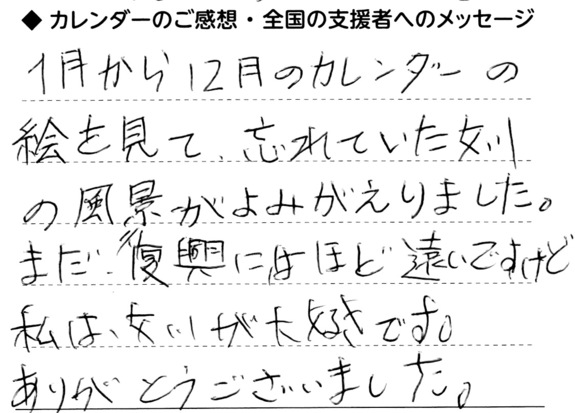 ◆ カレンダーのご感想・全国の支援者へのメッセージ
1月から12月のカレンダーの
絵を見て、忘れていた女川
の風景がよみがえりました。
まだ、復興にはほど遠いですけど
私は、女川が大好きです。
ありがとうございました。